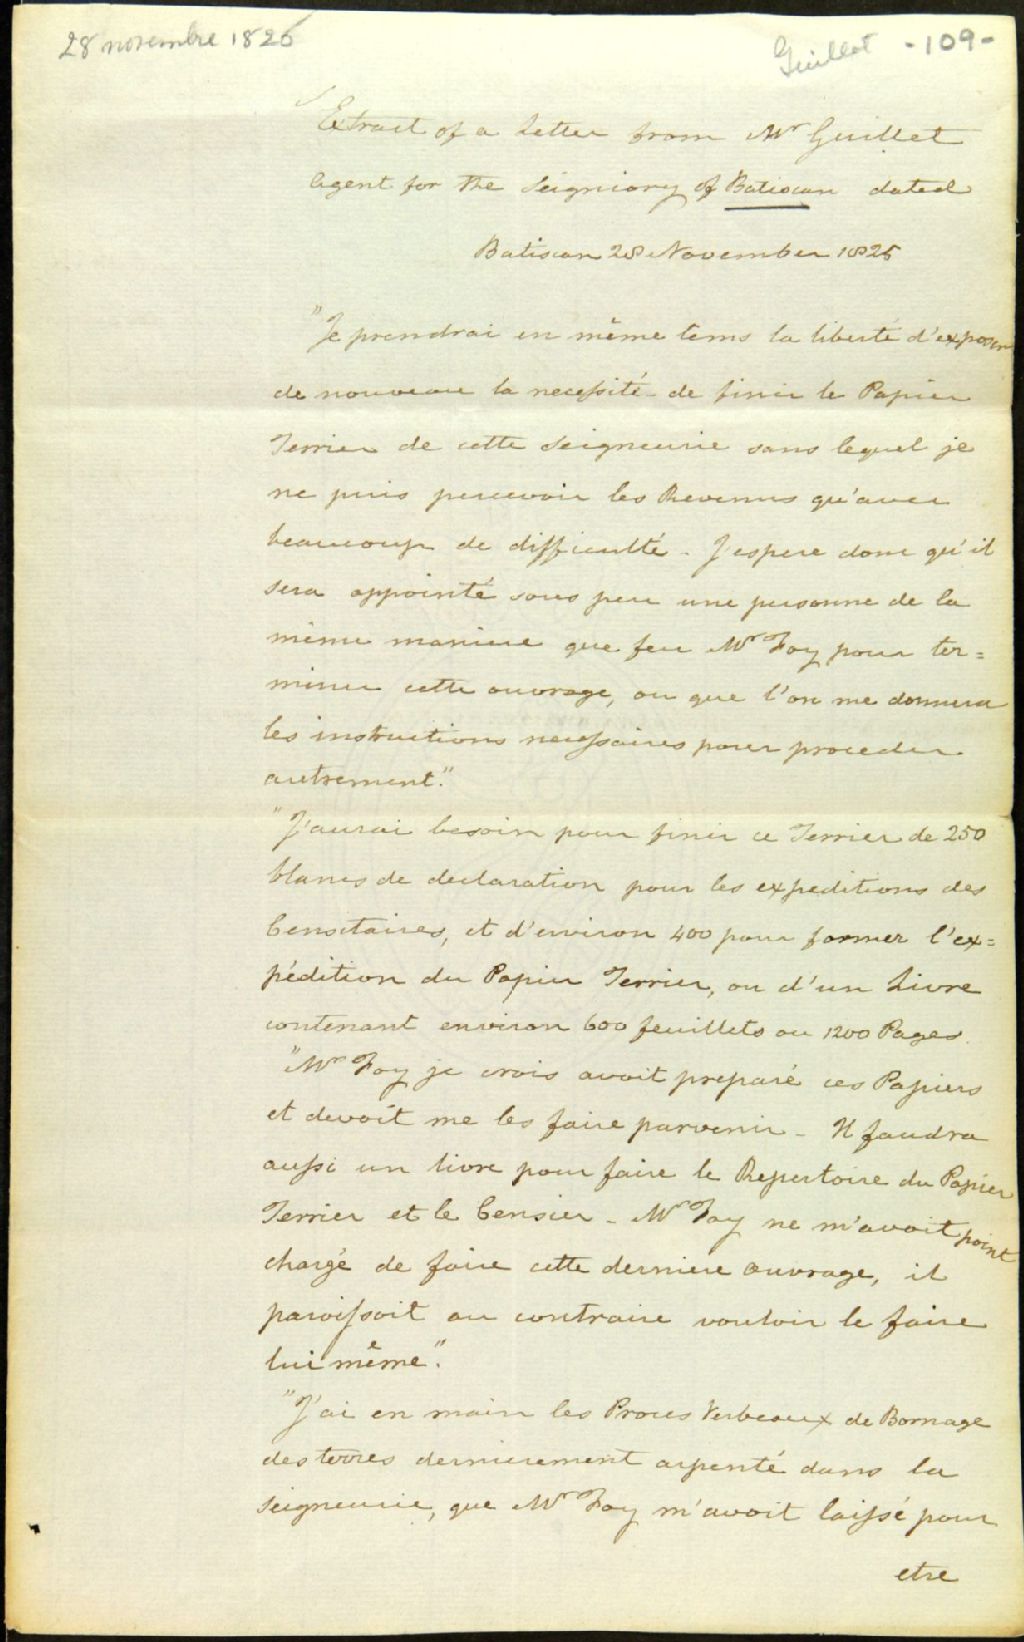 28 novembre 1826
Guillet -109-
Extract of a Letter from Mr Guillet
Agent for the Seigniory of Batiscan dated
Batiscan 28 November 1826
"Je prendrai en même tems la liberté d'exposer
de nouveau la necessité de finir le Papier
Terrier de cette Seigneurie sans lequel je
ne puis percevoir les Revenus qu'avec
beaucoup de difficulté - J'espere donc qu'il
sera appointé sous peu une personne de la
même maniere que feu Mr Foy pour ter=
miner cette ouvrage, ou que l'on me donnera
les instructions necessaires pour proceder
autrement."
"J'aurai besoin pour finir ce Terrier de 250
blancs de declaration pour les expeditions des
Censitaires, et d'environ 400 pour former l'ex=
pédition du Papier Terrier, ou d'un Livre
contenant environ 600 feuillets ou 1200 Pages.
"Mr Foy je crois avoit preparé ces Papiers
et devoit me les faire parvenir - Il faudra
aussi un livre pour faire le Repertoire du Papier
Terrier et le Censier - Mr Foy ne m'avoit point
chargé de faire cette derniere ouvrage, il
paroissoit au contraire vouloir le faire
lui même".
"J'ai en main les Proces Verbeaux de Bornage
des terres dernierement arpenté dans la
Seigneurie, que Mr Foy m'avoit laissé pour
etre